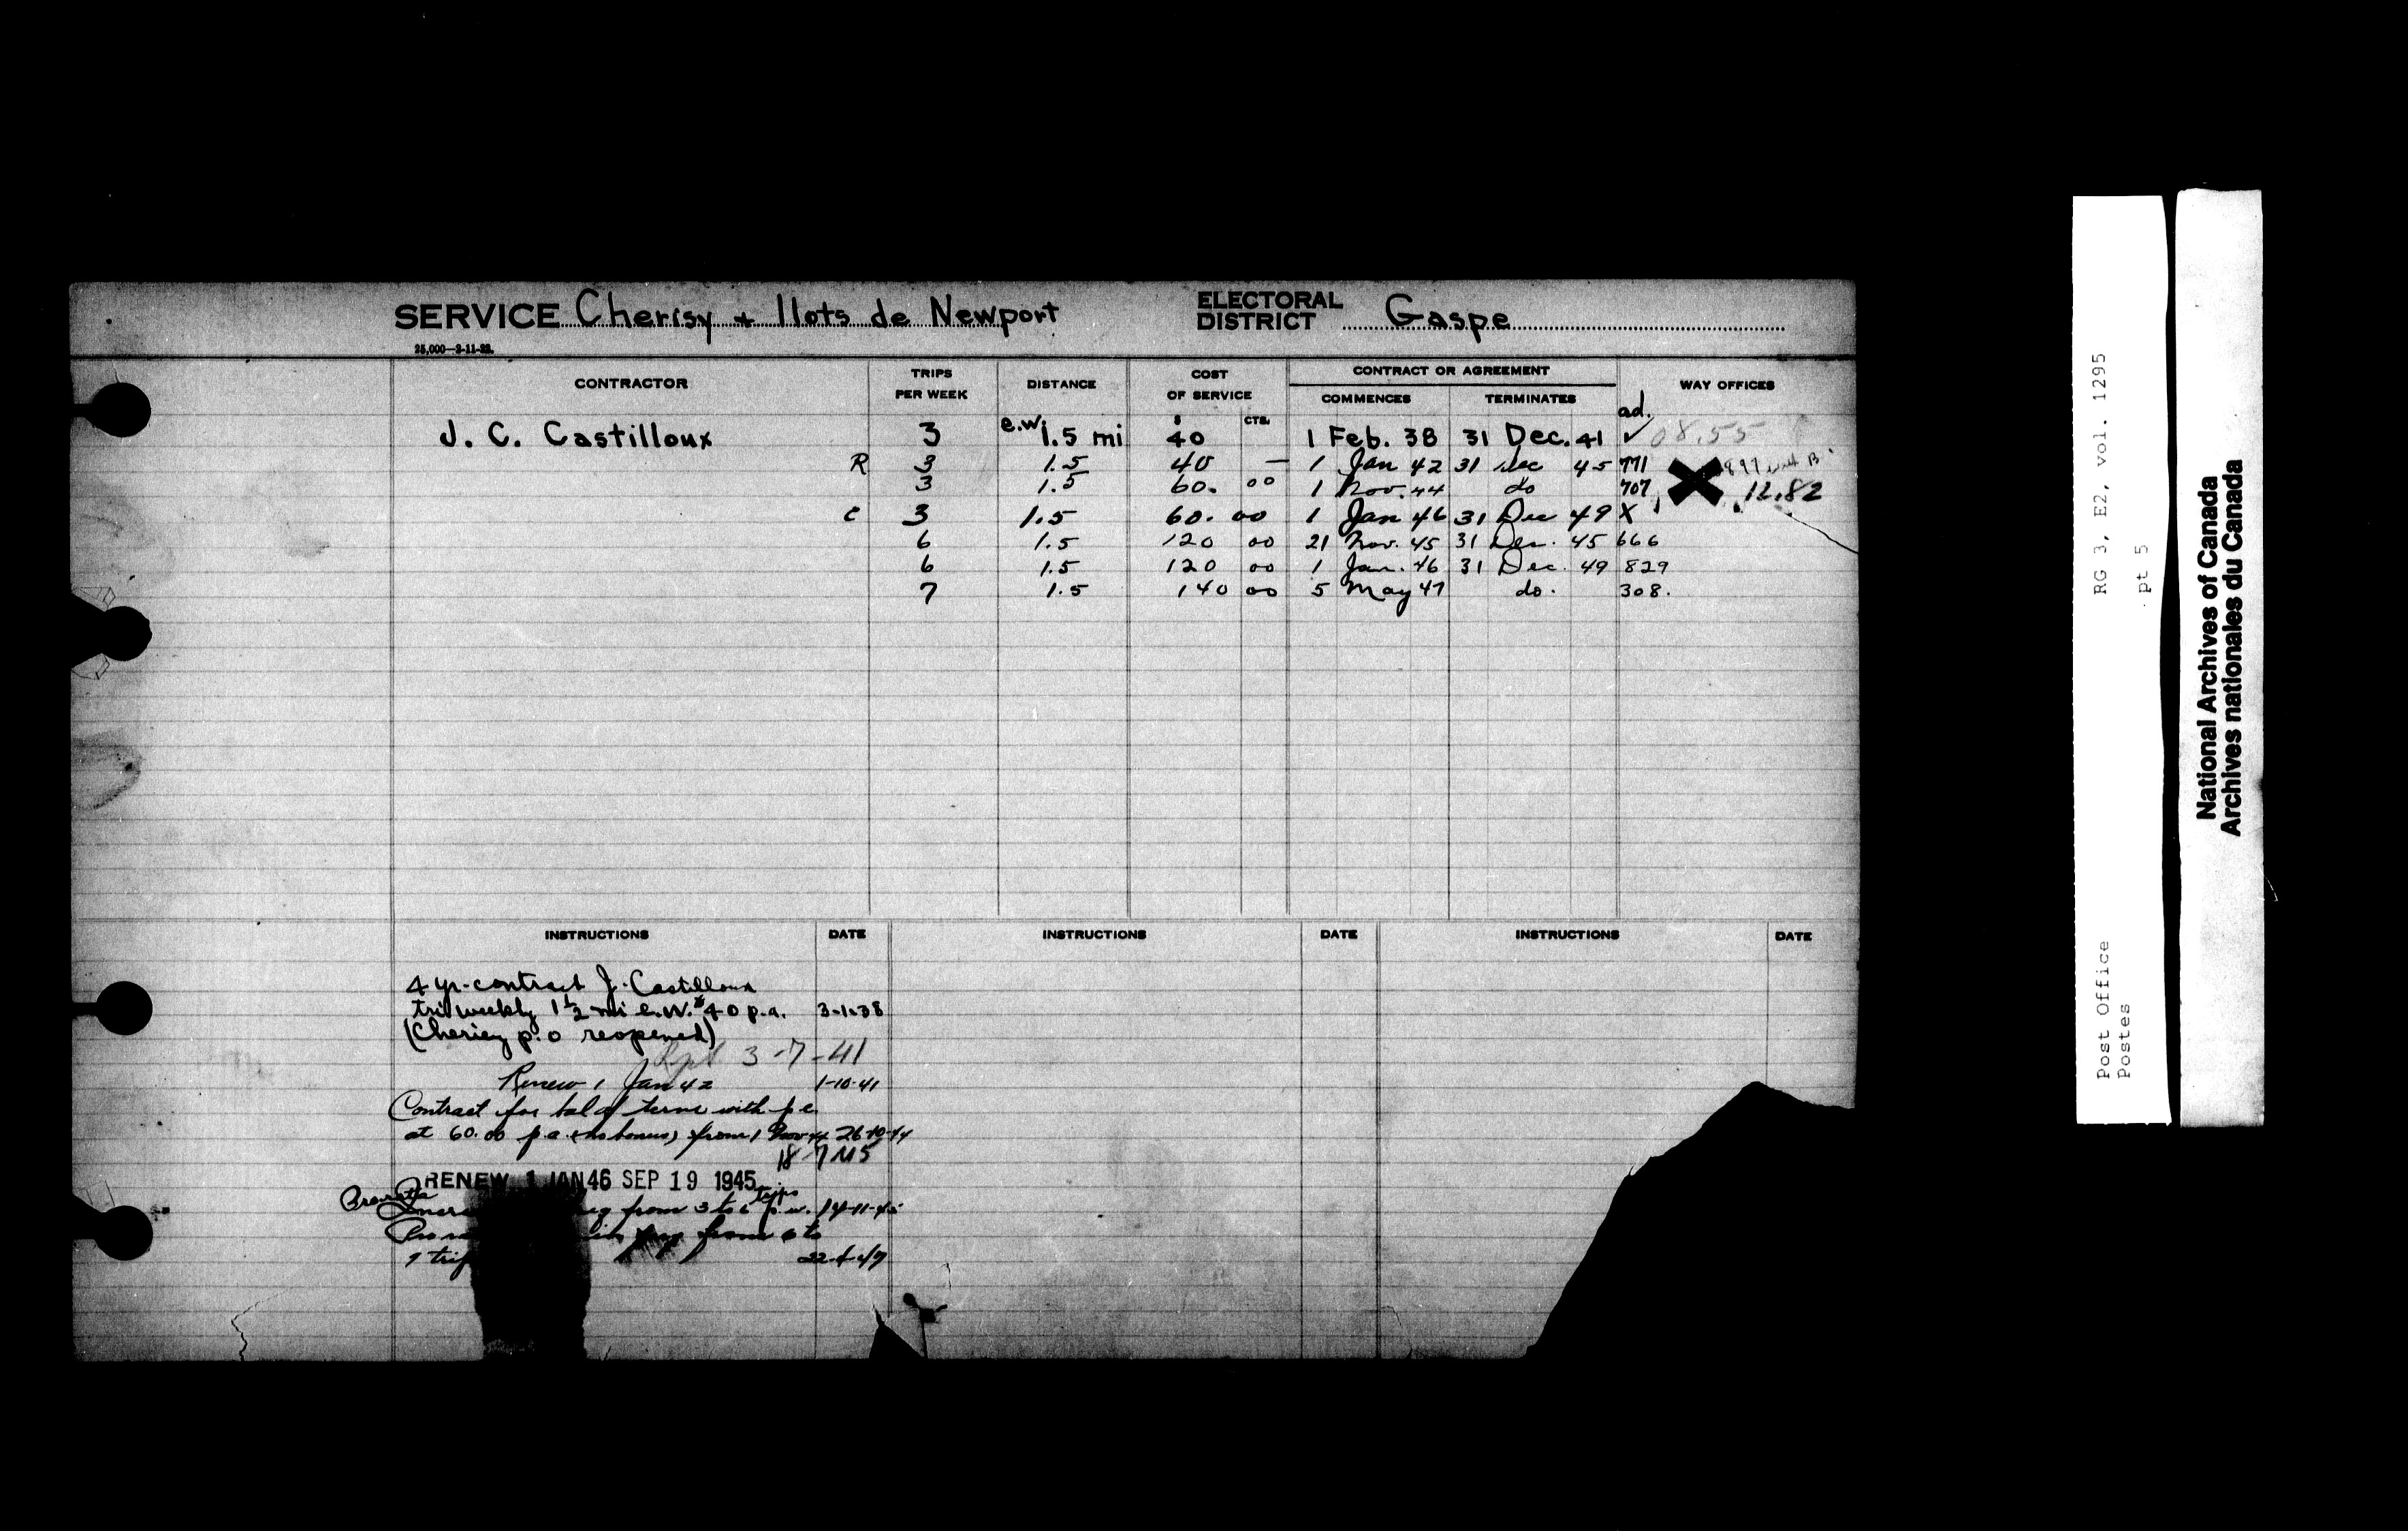 SERVICE Cherisy & Ilots de Newport ELECTORAL DISTRICT Gaspe
25,000—2-11-22.
CONTRACTOR TRIPS PER WEEK DISTANCE COST OF SERVICE CONTRACT OR AGREEMENT COMMENCES TERMINATES WAY OFFICES
$ CTS. ad.
J. C. Castilloux 3 e.w. 1.5 mi 40 1 Feb. 38 31 Dec. 41 ✓ 08.55
R 3 1.5 40 — 1 Jan 42 31 Dec 45 771
3 1.5 60. 00 1 Nov. 44 do 707 12.82
C 3 1.5 60. 00 1 Jan 46 31 Dec 49 X
6 1.5 120 00 21 Nov. 45 31 Dec. 45 666
6 1.5 120 00 1 Jan. 46 31 Dec. 49 829
7 1.5 140 00 5 May 47 do. 308.
INSTRUCTIONS DATE INSTRUCTIONS DATE INSTRUCTIONS DATE
4 yr. contract J. Castilloux
tri weekly 1½ mi e.w. $40 p.a. 3-1-38
(Cherisy p.o reopened)
3-7-41
Renew 1 Jan 42 1-10-41
Contract for bal of term with p.c.
at 60.00 p.a. (no bonus) from 1 Nov 44 26-10-44
18-7-45
RENEW 1 JAN 46 SEP 19 1945
from 3 to 6 trips p.w. 14-11-45
from 6 to
7 trip 22-4-47
RG 3, E2, vol. 1295
pt 5
Post Office
Postes
National Archives of Canada
Archives nationales du Canada